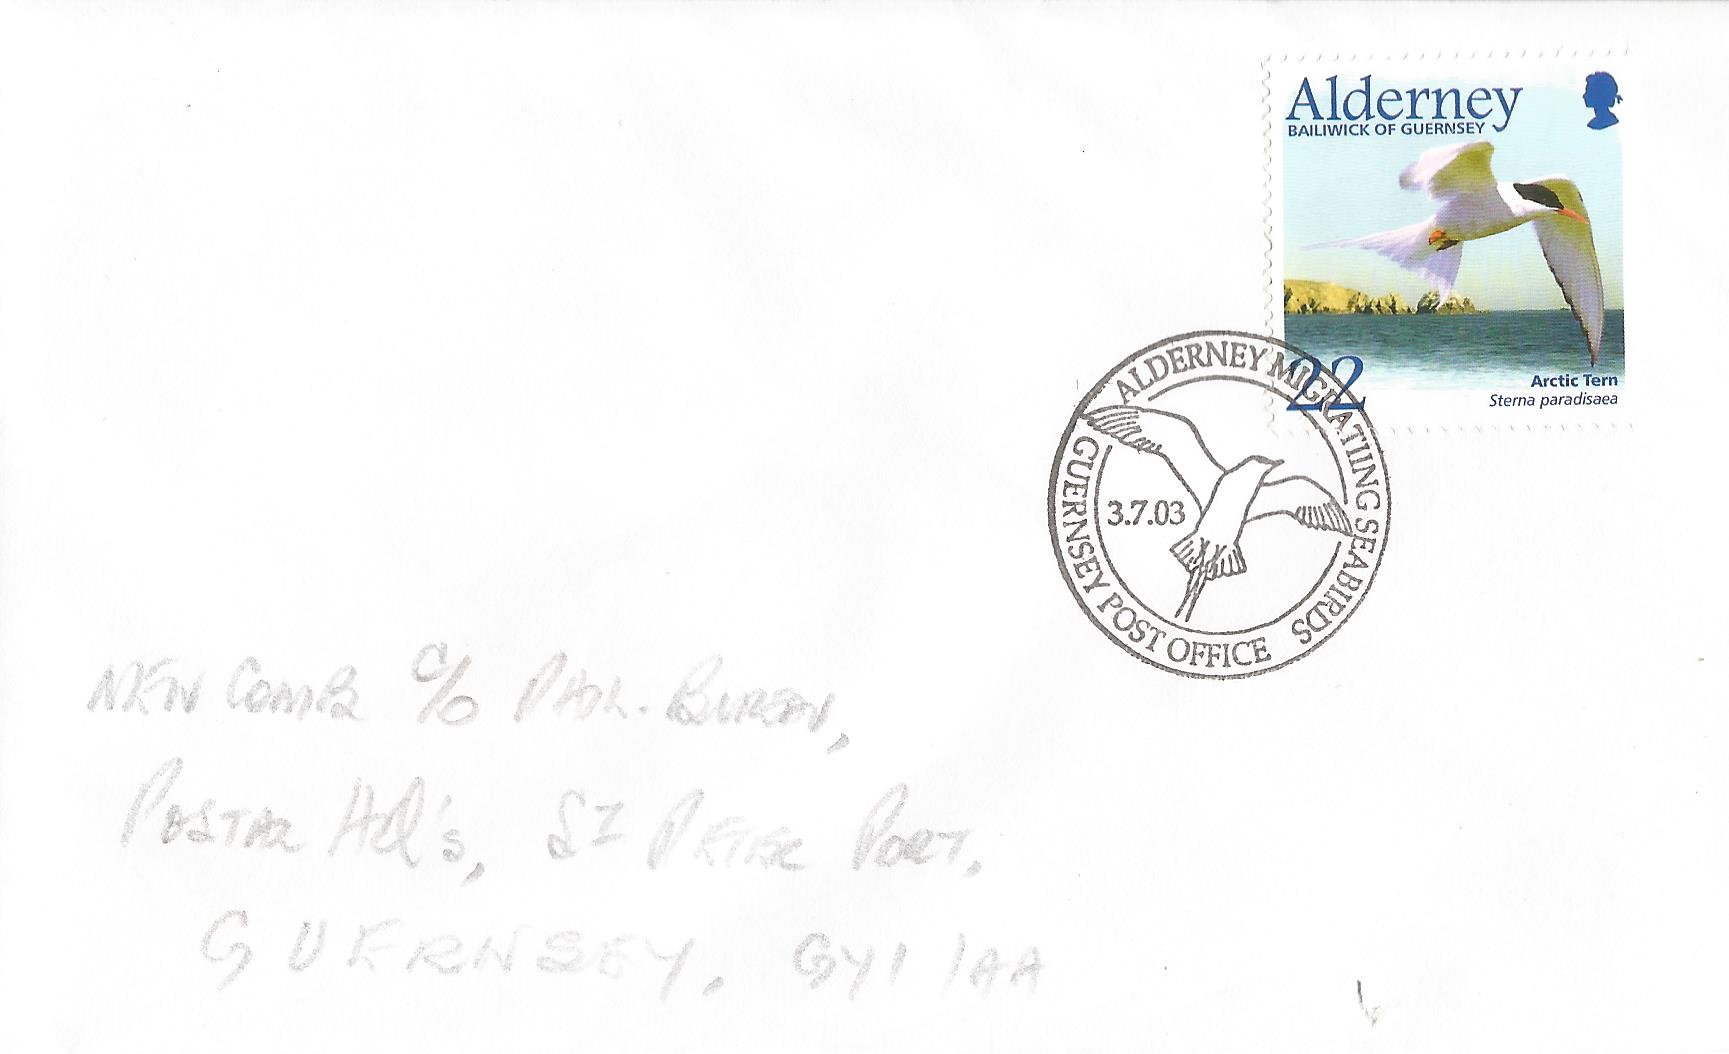 Alderney
BAILIWICK OF GUERNSEY
22
Arctic Tern
Sterna paradisaea
ALDERNEY MIGRATIING SEABIRDS
3.7.03
GUERNSEY POST OFFICE
NEWCOMB C/O PHIL. BUREAU,
POSTAL HQ's, ST PETER PORT,
GUERNSEY, GY1 1AA